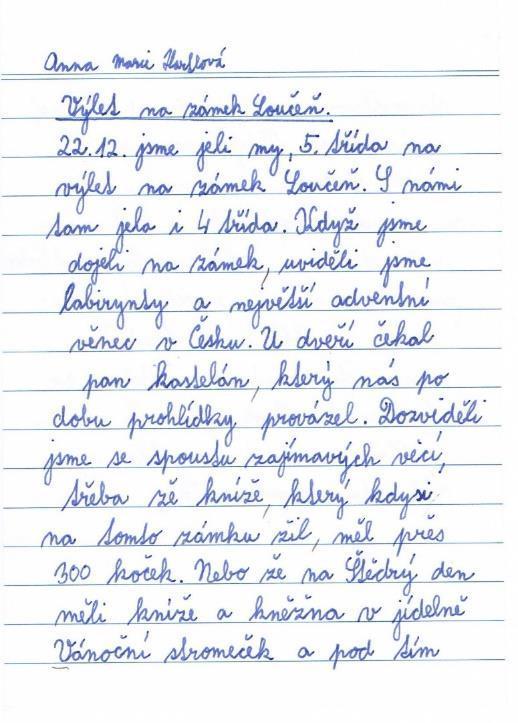 Anna Marie
Výlet na zámek Loučeň.
22.12. jsme jeli my, 5. třída na
výlet na zámek Loučeň. S námi
tam jela i 4 třída. Když jsme
dojeli na zámek, uviděli jsme
labirynty a největší adventní
věnec v Česku. U dveří čekal
pan kastelán, který nás po
dobu prohlídky provázel. Dozviděli
jsme se spoustu zajímavých věcí,
třeba zě kníže, který kdysi
na tomto zámku žil, měl přěs
300 koček. Nebo že na Štědrý den
měli kníže a kněžna v jídelně
Vánoční stromeček a pod tím